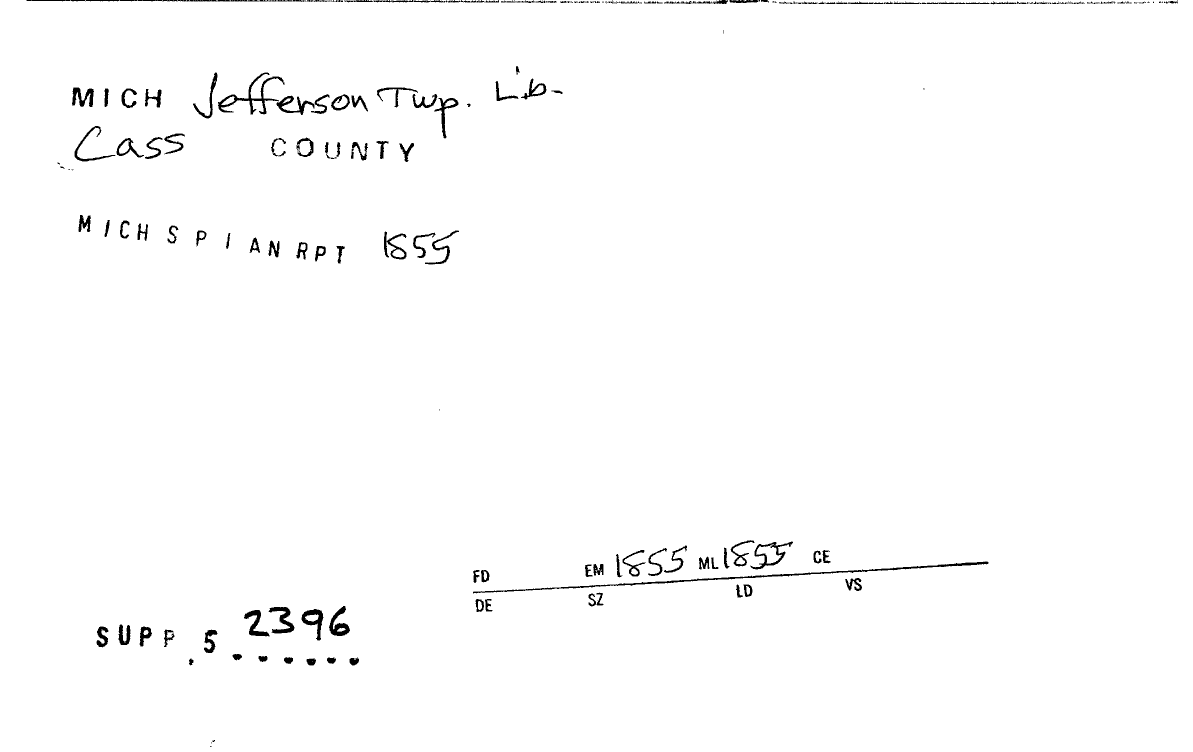 MICH Jefferson Twp. Lib.
Cass COUNTY
MICH S P I AN RPT 1855
FD EM 1855 ML 1855 CE
DE SZ LD VS
SUPP. 5 2396